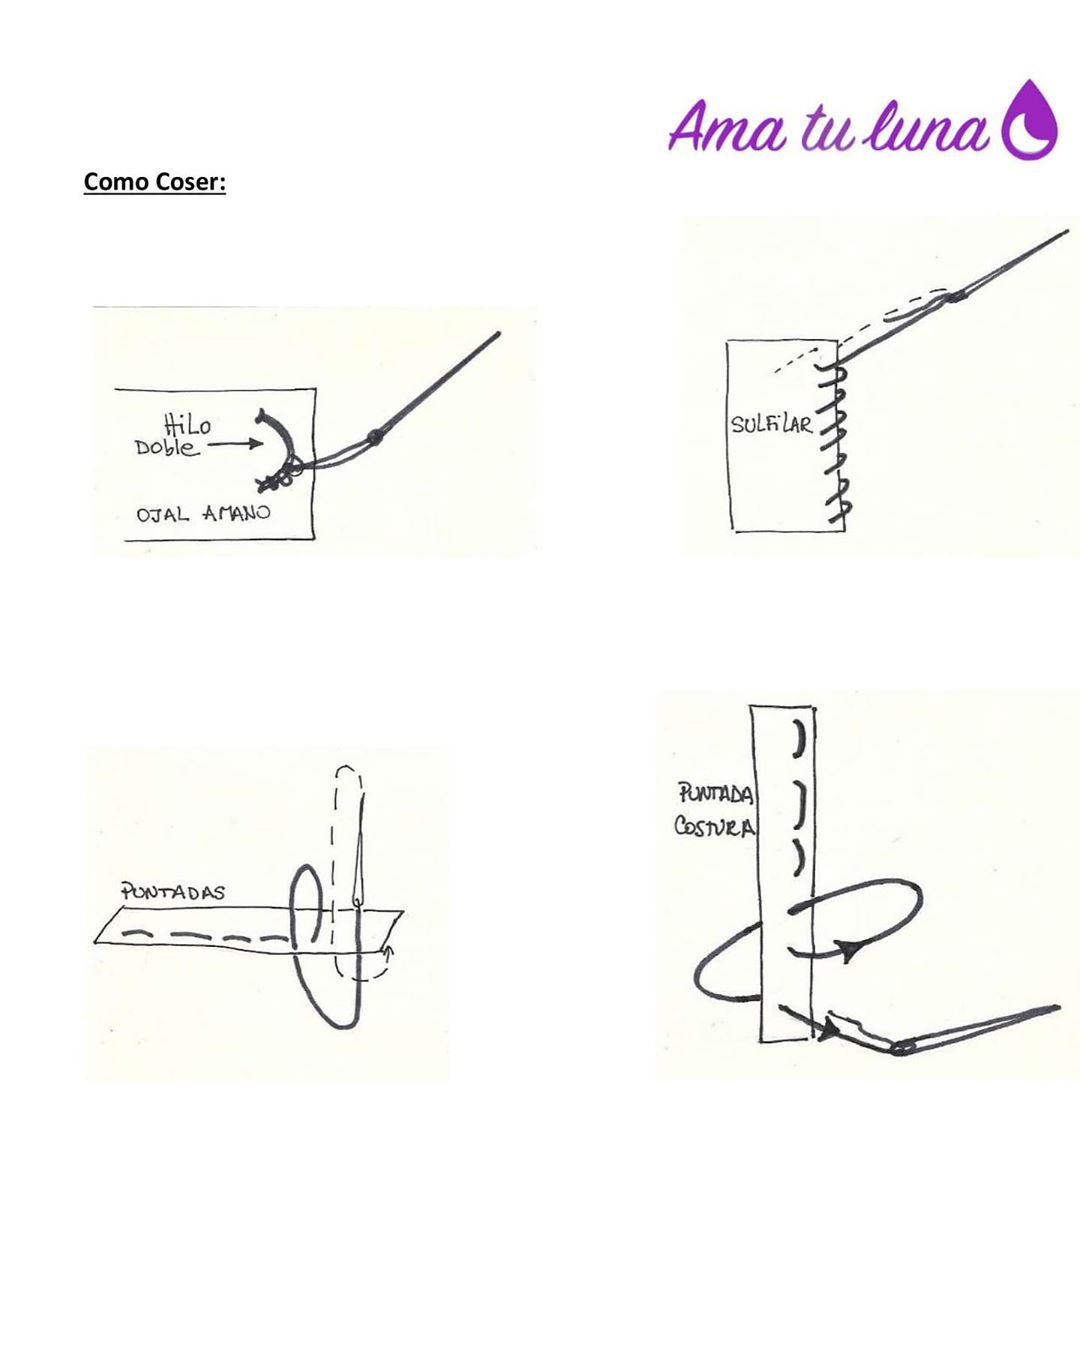 Ama tu luna
Como Coser:
HiLo
Doble
OJAL AMANO
SULFiLAR
PUNTADAS
PUNTADA
COSTURA